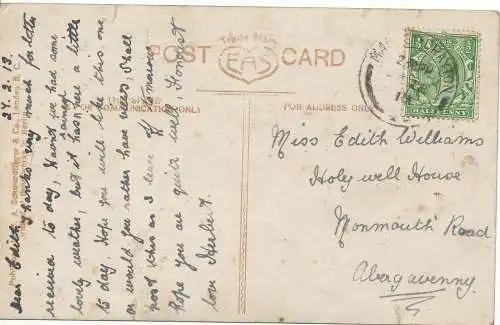 Trade Mark
EAS
POST CARD
FOR COMMUNICATION ONLY
FOR ADDRESS ONLY
HALFPENNY
24.2.13.
Dear Edith,
Thanks very much for letter
received to day, Havnt we had some
lovely weather, but it has rained a little
to day. Hope you will like this one
or would you rather have views, I shall
post this as I leave M tomorrow
hope you are quite well. Fondest
love Hubert.
Miss Edith Williams
Holywell House
Monmouth Road
Abergavenny.